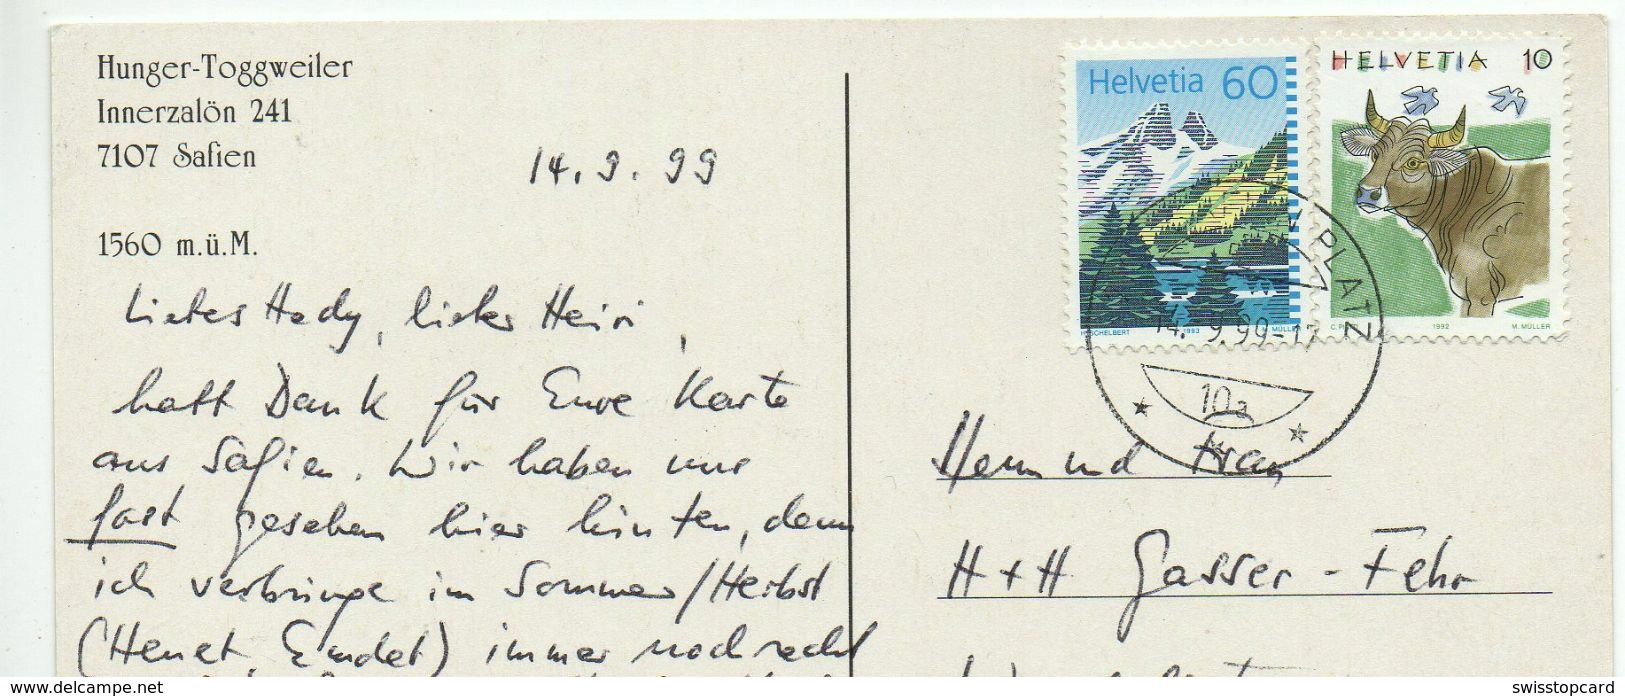 Hunger-Toggweiler
Innerzalön 241
7107 Safien
1560 m.ü.M.
14. 9. 99
Liebes Hedy, lieber Heiri,
hatt Dank für Eure Karte
aus Safien. Wir haben uns
fast gesehen hier hinten, denn
ich verbringe im Sommer/Herbst
(Heuet, Emdet) immer noch recht
Helvetia 60
1993
HELVETIA 10
1992 M. MÜLLER
PLATZ
14. 9.99-17
10a
Herrn und Frau
H + H Gasser-Fehr
www.delcampe.net
swisstopcard